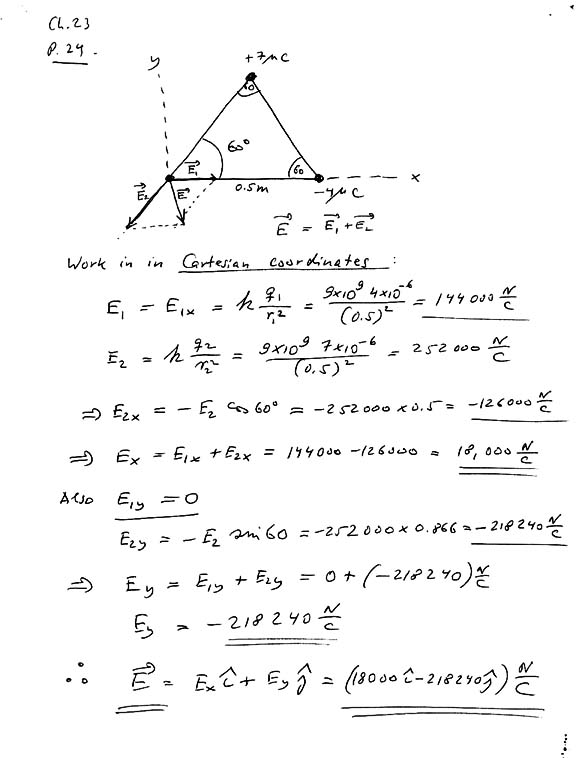 Ch.23
P. 24.
y
+7μC
60
60°
E⃗₁
60
x
E⃗₂
E⃗
0.5m
-4μC
E⃗ = E⃗₁+E⃗₂
Work in in Cartesian coordinates :
E₁ = E₁ₓ = k q₁/r₁² = 9x10⁹ 4x10⁻⁶/(0.5)² = 144000 N/C
E₂ = k q₂/r₂² = 9x10⁹ 7x10⁻⁶/(0.5)² = 252000 N/C
⇒ E₂ₓ = - E₂ cos 60° = -252000 x 0.5 = -126000 N/C
⇒ Eₓ = E₁ₓ + E₂ₓ = 144000 - 126000 = 18,000 N/C
Also E₁y = 0
E₂y = - E₂ sin 60 = -252000 x 0.866 = -218240 N/C
⇒ Ey = E₁y + E₂y = 0 + (-218240) N/C
Ey = -218240 N/C
∴ E⃗ = Eₓ î + Ey ĵ = (18000 î - 218240 ĵ) N/C